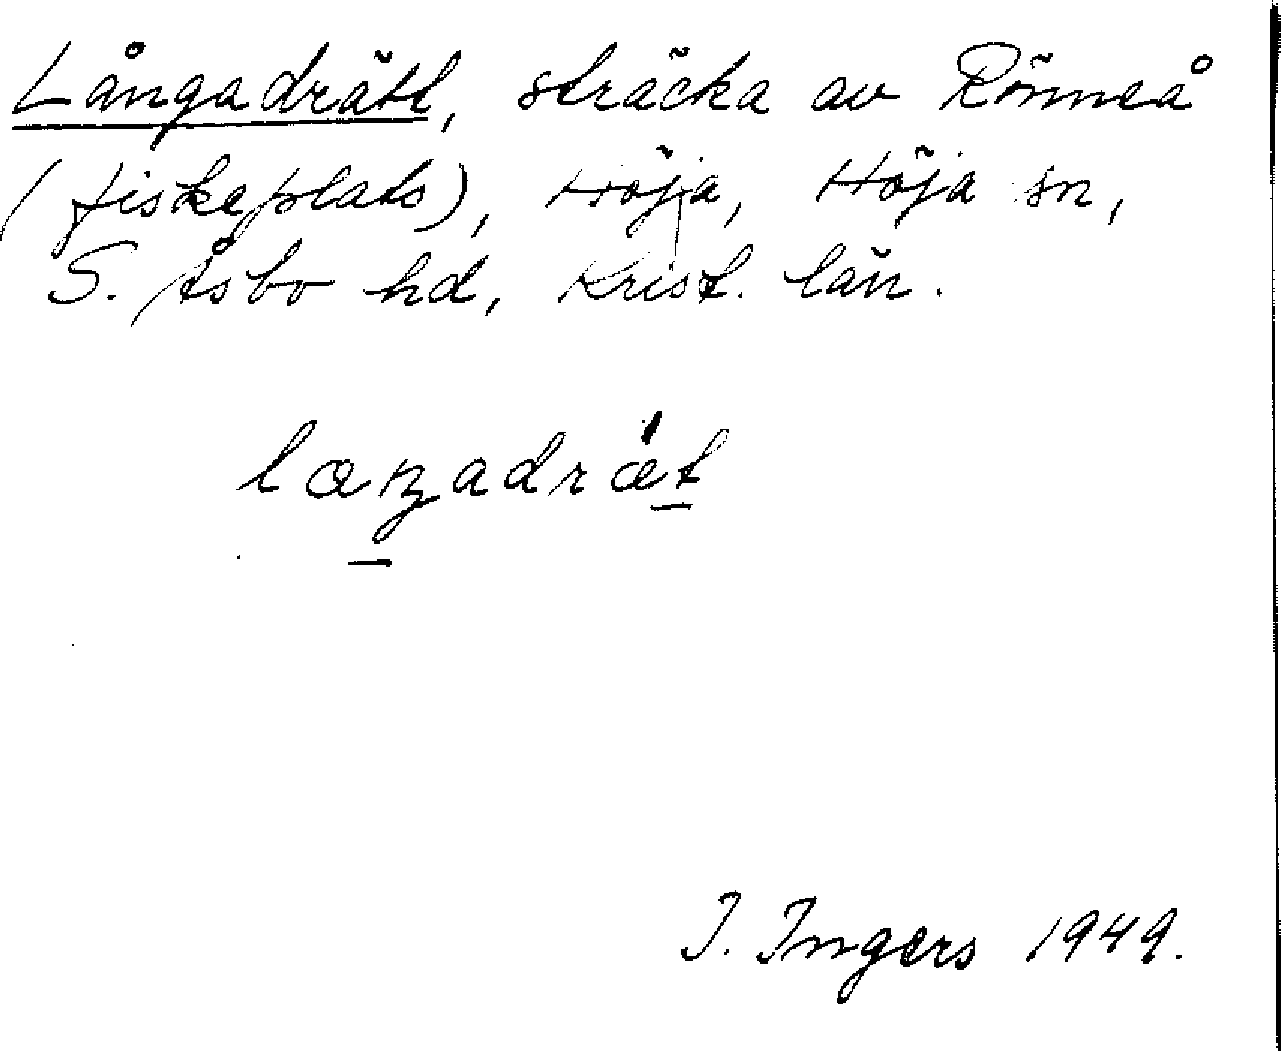 Långadrätt, sträcka av Rönneå
(fiskeplats), Höja, Höja sn,
S. Åsbo hd, Krist. län.
I. Ingers 1949.